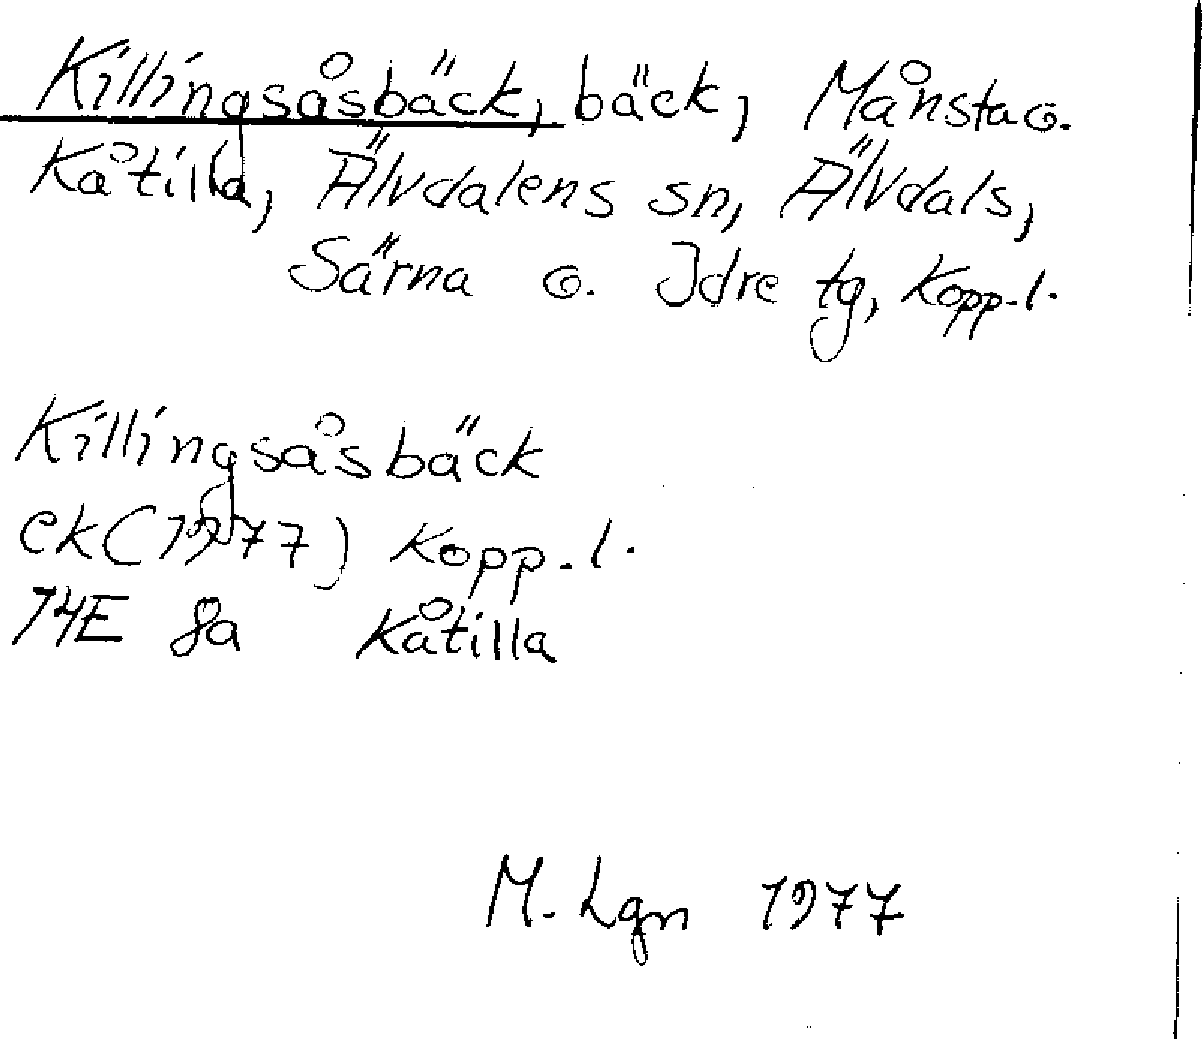 Killingsåsbäck, bäck, Månsta o.
Kåtilla, Älvdalens sn, Älvdals,
Särna o. Idre tg, Kopp.l.
Killingsåsbäck
ek(1977) Kopp.l.
14E 8a Kåtilla
M. Lgn 1977